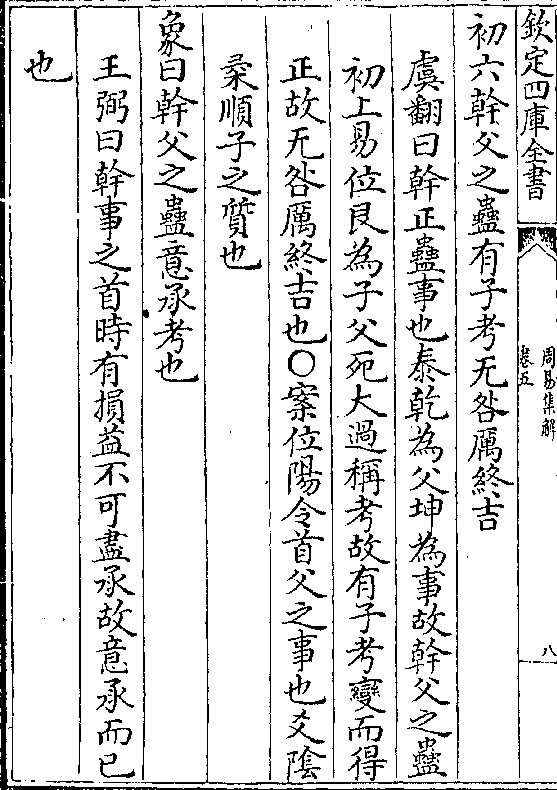 欽定四庫全書
周易集解
卷五
八
初六幹父之蠱有子考无咎厲終吉
虞翻曰幹正蠱事也泰乾為父坤為事故幹父之蠱
初上易位艮為子父死大過稱考故有子考變而得
正故无咎厲終吉也○案位陽令首父之事也爻隂
柔順子之質也
象曰幹父之蠱意承考也
王弼曰幹事之首時有損益不可盡承故意承而已
也